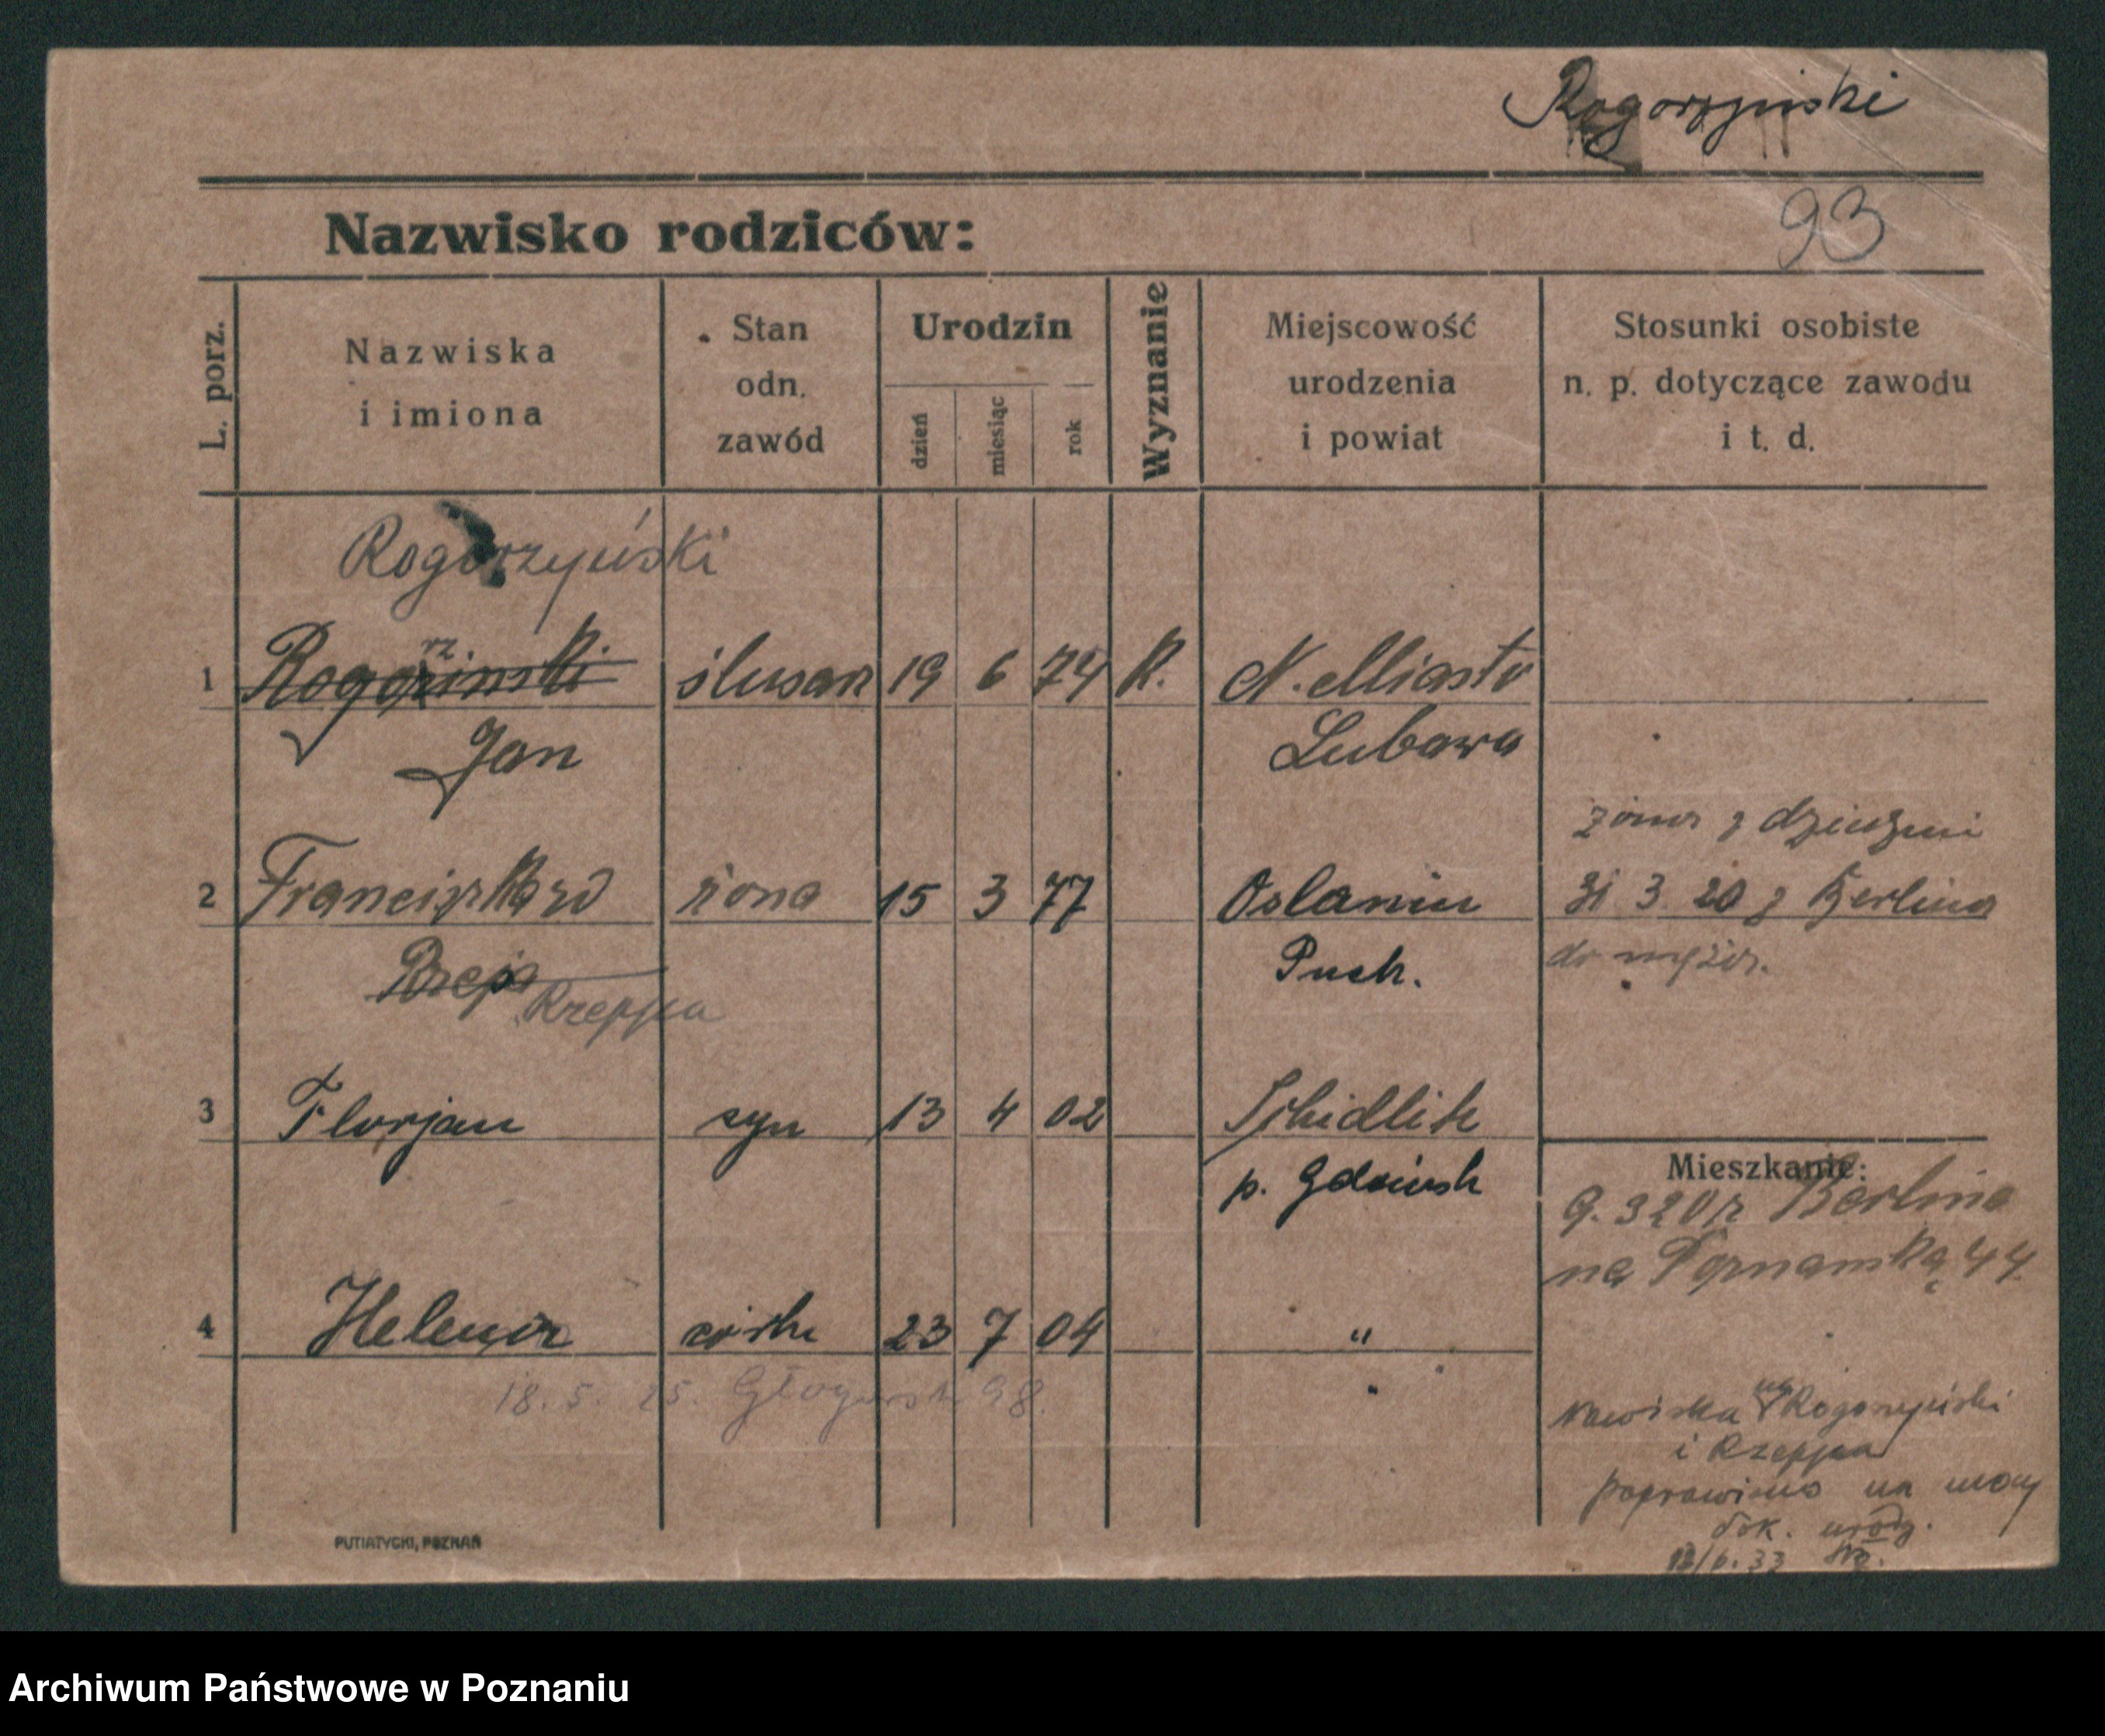 Rogorzyński
93
Nazwisko rodziców:
L. porz.
Nazwiska
i imiona
Stan
odn.
zawód
Urodzin
dzień
miesiąc
rok
Wyznanie
Miejscowość
urodzenia
i powiat
Stosunki osobiste
n. p. dotyczące zawodu
i t. d.
Rogorzyński
rz.
1 Rogoziński ślusarz 19 6 74 K. N. Miasto
Jan Lubawa
żona z dziećmi
2 Franciszka żona 15 3 77 Oslanin 31 3. 20 z Berlina
Puck. do męża.
Rzeppa
3 Florjan syn 13 4 02 Schidlitz
p. Gdańsk
Mieszkanie:
9. 3 20 z Berlina
na Poznańską 44.
4 Helena córka 23 7 04 "
18. 5. 25. Głogowsk 98.
Nazwiska na Rogorzyński
i Rzeppa
poprawiono na mocy
dok. urodz.
12/6. 33
PUTIATYCKI, POZNAŃ
Archiwum Państwowe w Poznaniu